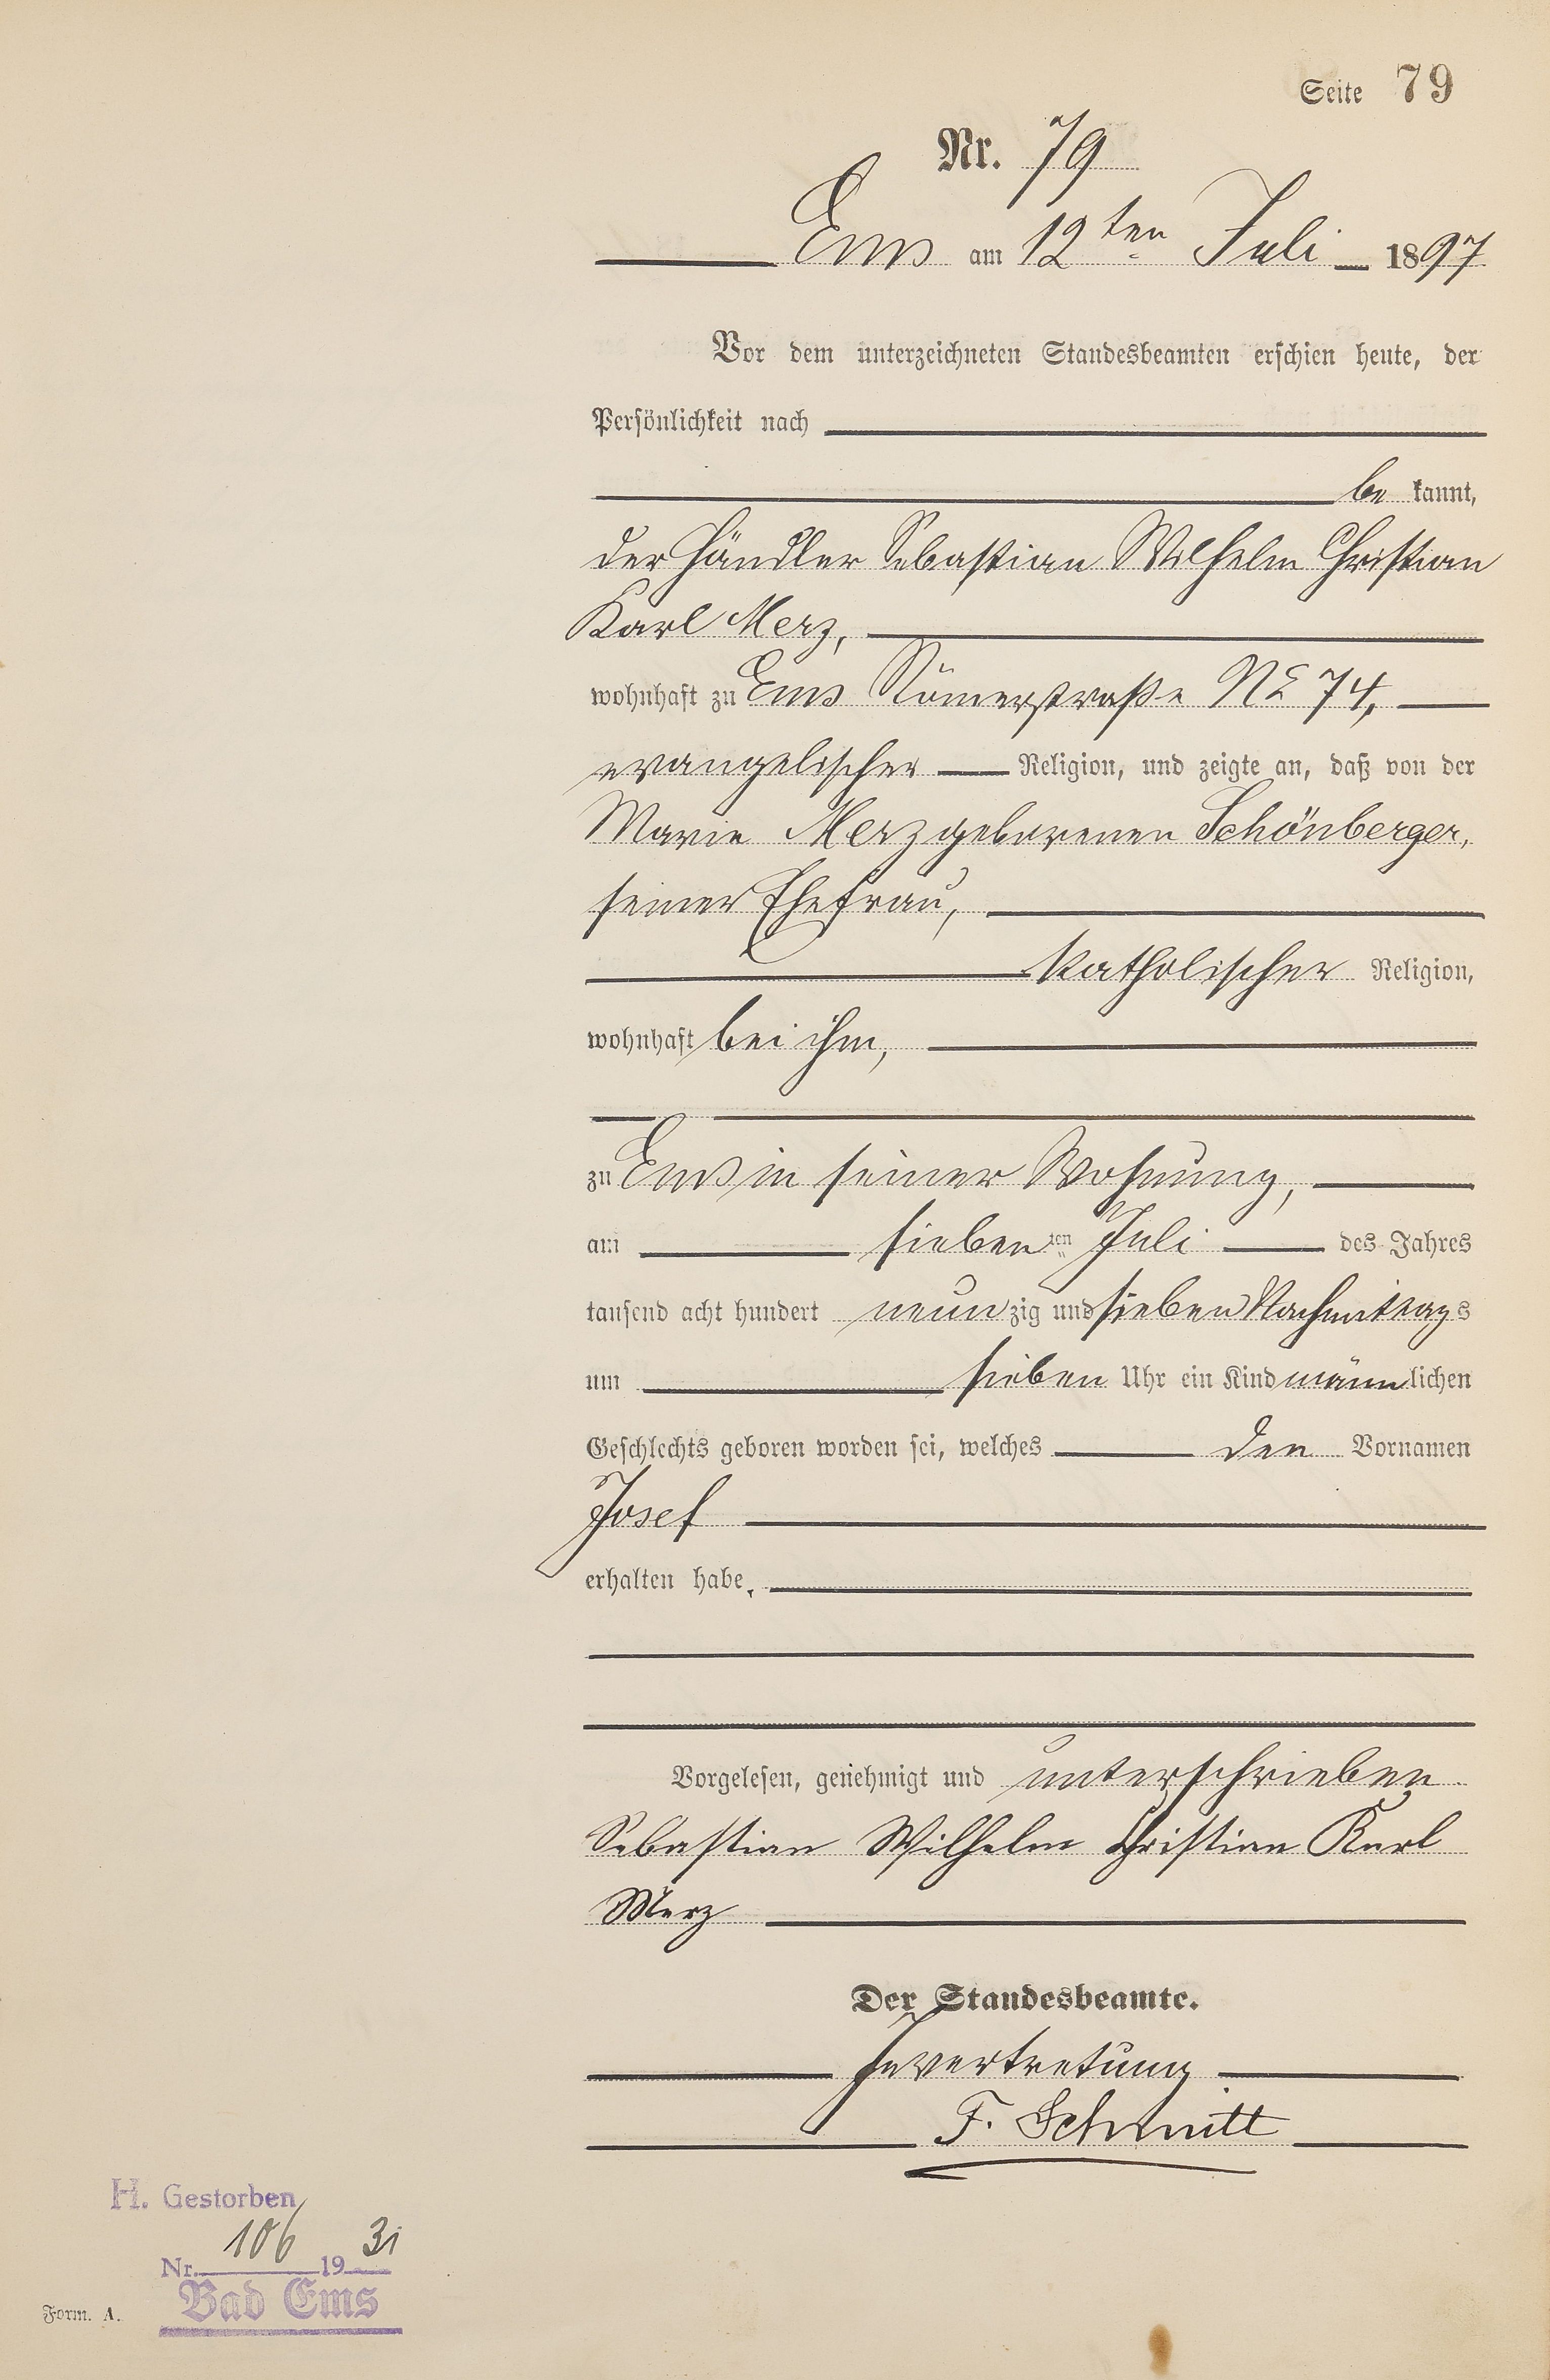 Seite 79
Nr. 79
Ems am 12ten Juli 1897
Vor dem unterzeichneten Standesbeamten erschien heute, der
Persönlichkeit nach
be kannt,
der Händler Sebastian Wilhelm Christian
Karl Merz,
wohnhaft zu Ems Römerstraße No 74,
evangelischer Religion, und zeigte an, daß von der
Marie Merz geborenen Schönberger,
seiner Ehefrau,
katholischer Religion,
wohnhaft bei ihm,
zu Ems in seiner Wohnung,
am sieben ten Juli des Jahres
tausend acht hundert neun zig und sieben Nachmittag s
um sieben Uhr ein Kind männ lichen
Geschlechts geboren worden sei, welches den Vornamen
Josef
erhalten habe.
Vorgelesen, genehmigt und unterschrieben
Sebastian Wilhelm Christian Karl
Merz
Der Standesbeamte.
In Vertretung
F. Schmitt
H. Gestorben
Nr. 106 19 31
Bad Ems
Form. A.